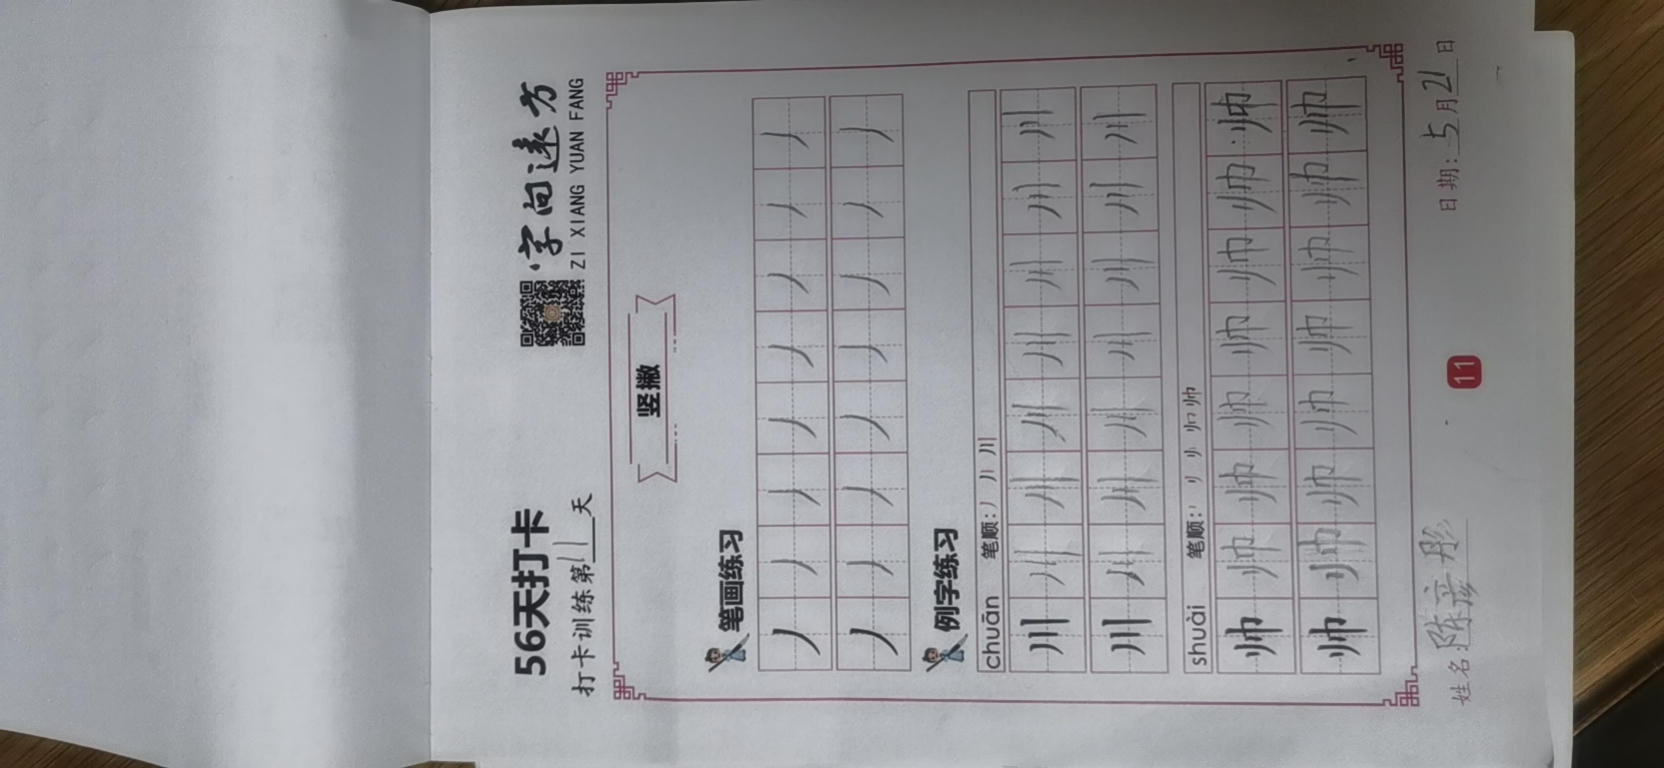 56天打卡
字向远方
ZI XIANG YUAN FANG
打卡训练第11天
竖撇
笔画练习
丿丿丿丿丿丿丿丿
丿丿丿丿丿丿丿丿
例字练习
chuān 笔顺:丿 丿丨 川
川川川川川川川川
川川川川川川川川
shuài 笔顺:丨 刂 帅
帅帅帅帅帅帅帅帅
帅帅帅帅帅帅帅帅
姓名:陈彦彤 日期:5月21日
11